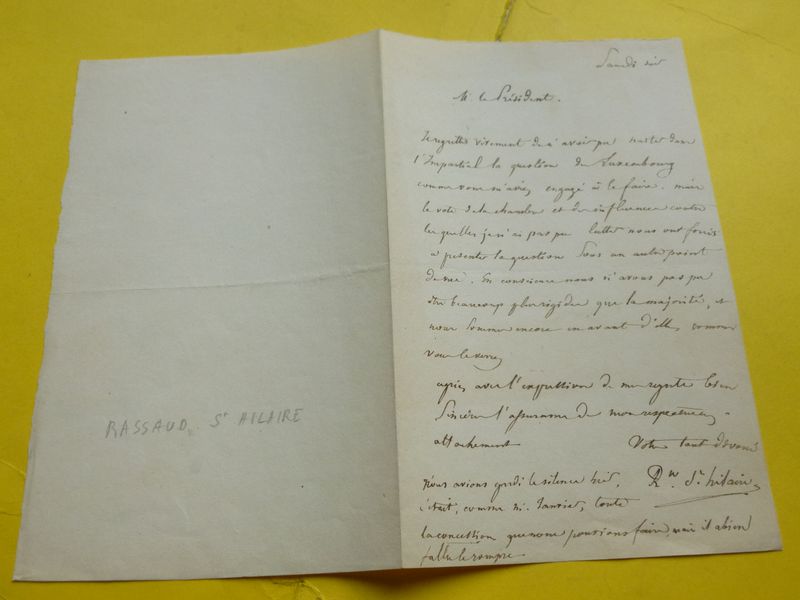 Samedi soir
M. le Président.
Je regrette vivement de n'avoir pu traiter dans
l'Impartial la question du Luxembourg
comme vous m'aviez engagé à le faire. mais
le vote de la chambre et des influences contre
lesquelles je n'ai pas pu lutter nous ont forcés
à présenter la question sous un autre point
de vue. En conscience nous n'avons pas pu
être beaucoup plus rigides que la majorité, et
nous sommes encore en avant d'elle, comme
vous le verrez
agréez avec l'expression de mes regrets bien
sincères l'assurance de mon respectueux
attachement
Votre tout dévoué
Rd. St. hilaire
Nous avions gardé le silence hier,
c'était, comme M. Janvier, toute
la concession que nous pouvions faire, mais il a bien
fallu le rompre.
RASSAUD. St HILAIRE